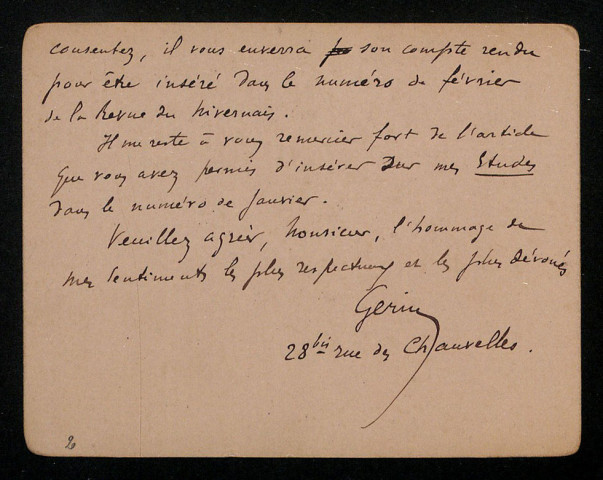 consentez, il vous enverra son compte rendu
pour être inséré dans le numéro de février
de la Revue du Nivernais.
Il me reste à vous remercier fort de l'article
que vous avez permis d'insérer sur mes Études
dans le numéro de Janvier.
Veuillez agréer, Monsieur, l'hommage de
mes sentiments les plus respectueux et les plus dévoués
Gerin
28 bis rue des Chauvelles.
2